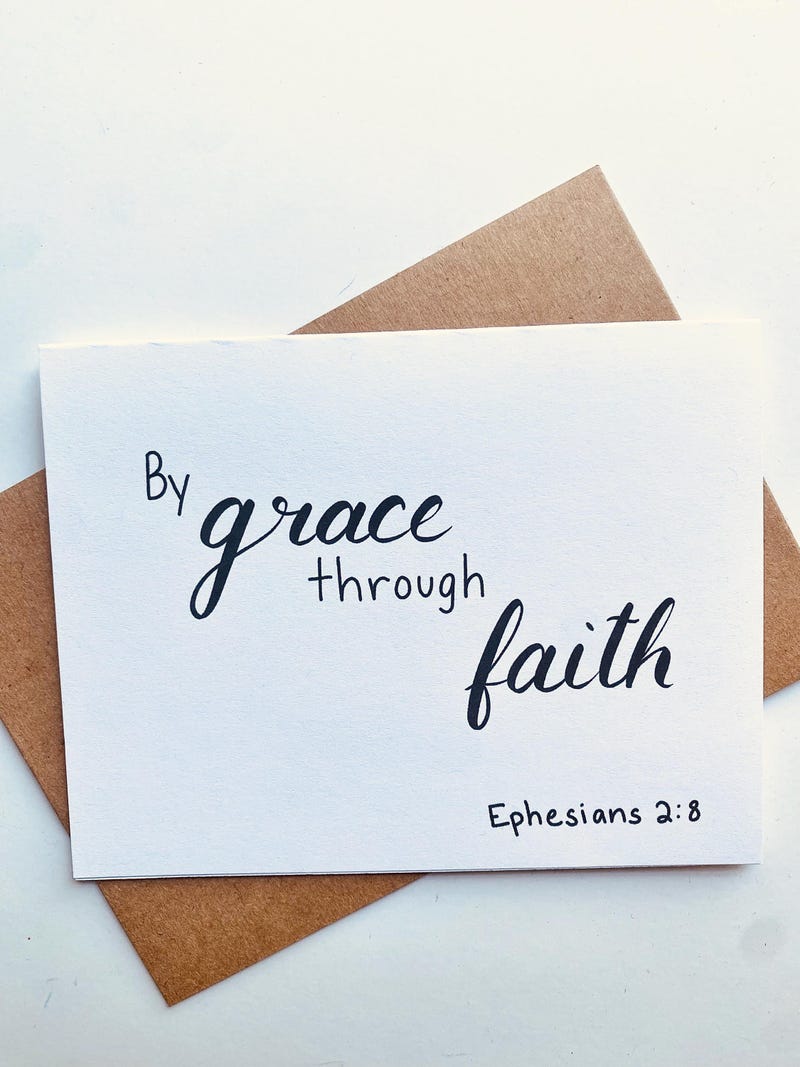 By
grace
through
faith
Ephesians 2:8